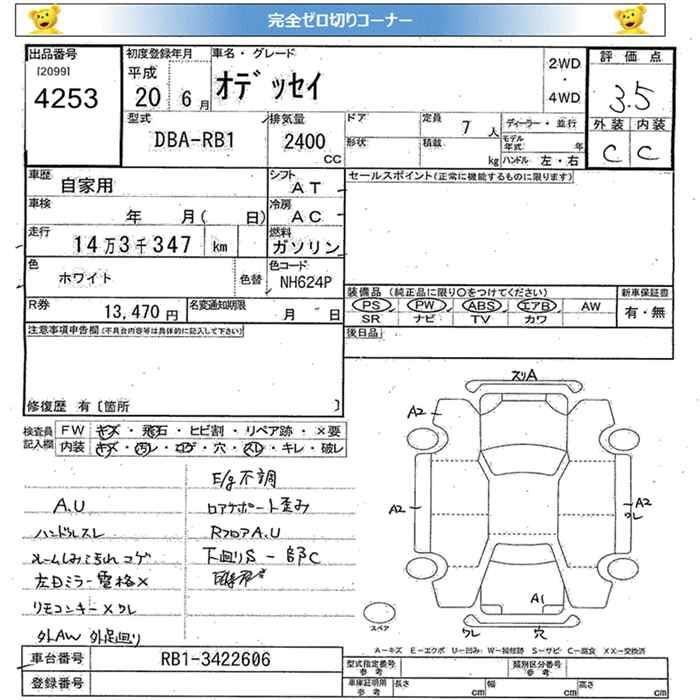 完全ゼロ切りコーナー
出品番号
[2099]
4253
初度登録年月
平成
20 6月
車名・グレード
オデッセイ
2WD
・
4WD
評価点
3.5
外装 内装
C C
型式
DBA-RB1
排気量
2400
cc
ドア
形状
定員 7 人
積載 kg
ディーラー・並行
モデル年式 年
ハンドル 左・右
車歴
自家用
シフト
AT
車検
年 月( 日)
冷房
AC
走行
14万3千347 km
燃料
ガソリン
色
ホワイト
色替
色コード
NH624P
R券
13,470 円
名変通知期限
月 日
セールスポイント(正常に機能するものに限ります)
装備品(純正品に限り○をつけてください)
PS PW ABS エアB AW
SR ナビ TV カワ
新車保証書
有・無
後日品
注意事項申告欄(不具合内容等は具体的に記入して下さい)
修復歴 有〔箇所 〕
検査員記入欄
FW キズ・飛石・ヒビ割・リペア跡・×要
内装 キズ・汚レ・コゲ・穴・スレ・キレ・破レ
E/g不調
A.U
ハンドルスレ
ルームしみ汚れ コゲ
左Dミラー電格×
リモコンキー×ワレ
外AW 外足廻り
コアサポート歪み
RフロアA.U
下廻りS-部C
スリA
A2
A2
A2
ワレ
A1
ワレ
穴
スペア
A-キズ E-エクボ U-凹み W-補修跡 S-サビ C-腐食 XX-交換済
車台番号
RB1-3422606
登録番号
型式指定番号
参考
類別区分番号
参考
車庫証明用
参考
長さ cm
幅 cm
高さ cm